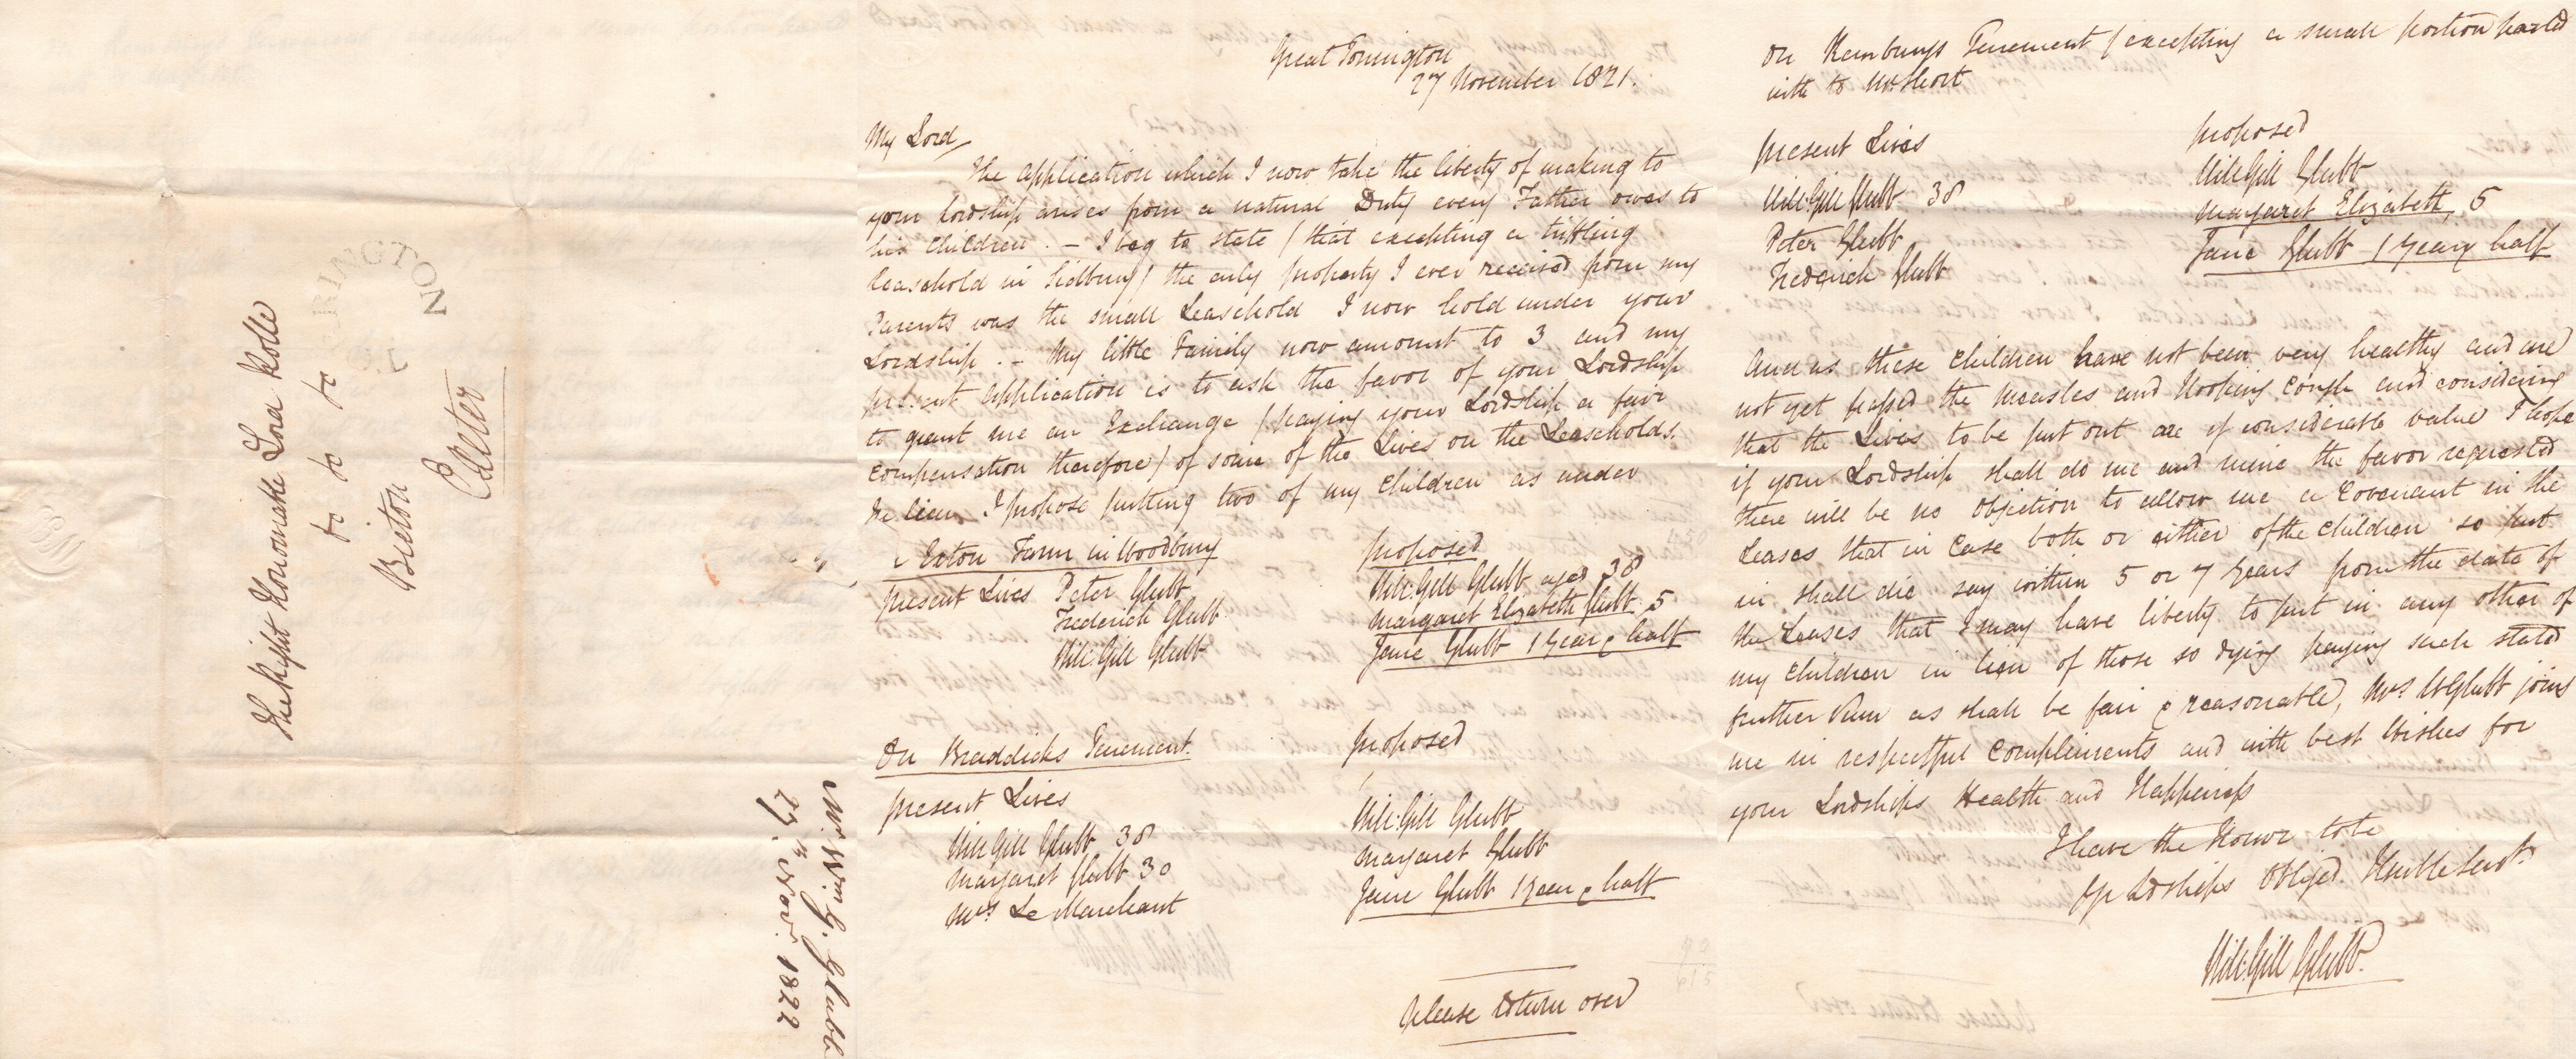 The Right Honourable Lord Rolle
to to to
Bicton
Exeter
RINGTON
Mr. Wm. G. Glubb
27th Novr. 1822
Great Torrington
27 November 1821.
My Lord,
The application which I now take the liberty of making to
your Lordship arises from a natural Duty every Father owes to
his Children. - I beg to state (that excepting a trifling
leasehold in Sidbury) the only property I ever received from my
Parents was the small Leasehold I now hold under your
Lordship. - My little Family now amount to 3 and my
present application is to ask the favor of your Lordship
to grant me an Exchange (paying your Lordship a fair
compensation therefore) of some of the Lives on the Leaseholds.
In lieu I propose putting two of my Children as under
Exton Farm in Woodbury
proposed
present Lives Peter Glubb
Will: Gill Glubb aged 38
Frederick Glubb
Margaret Elizabeth Glubb 5
Will: Gill Glubb
Jane Glubb 1 year & half
On Braddicks Tenement.
proposed
present Lives
Will Gill Glubb 38
Will: Gill Glubb
Margaret Glubb 30
Margaret Glubb
Mrs Le Marchant
Jane Glubb 1 year & half
please return over
On Kemburys Tenement (excepting a small portion parted
with to Mr Short
present Lives
proposed
Will: Gill Glubb 38
Will: Gill Glubb
Peter Glubb
Margaret Elizabeth, 5
Frederick Glubb
Jane Glubb 1 year & half
And as these Children have not been very healthy and are
not yet passed the Measles and Hooping Cough and considering
that the Lives to be put out are of considerable value I hope
if your Lordship shall do me and mine the favor requested
there will be no Objection to allow me a Covenant in the
Leases that in Case both or either of the Children so put
in shall die say within 5 or 7 years from the date of
the Leases that I may have liberty to put in any other of
my Children in lieu of those so dying paying such stated
further Sum as shall be fair & reasonable, Mrs W Glubb joins
me in respectful Compliments and with best Wishes for
your Lordships Health and Happiness
I have the Honor to be
Yr Ldships Obliged. Humble Servt.
Will: Gill Glubb.